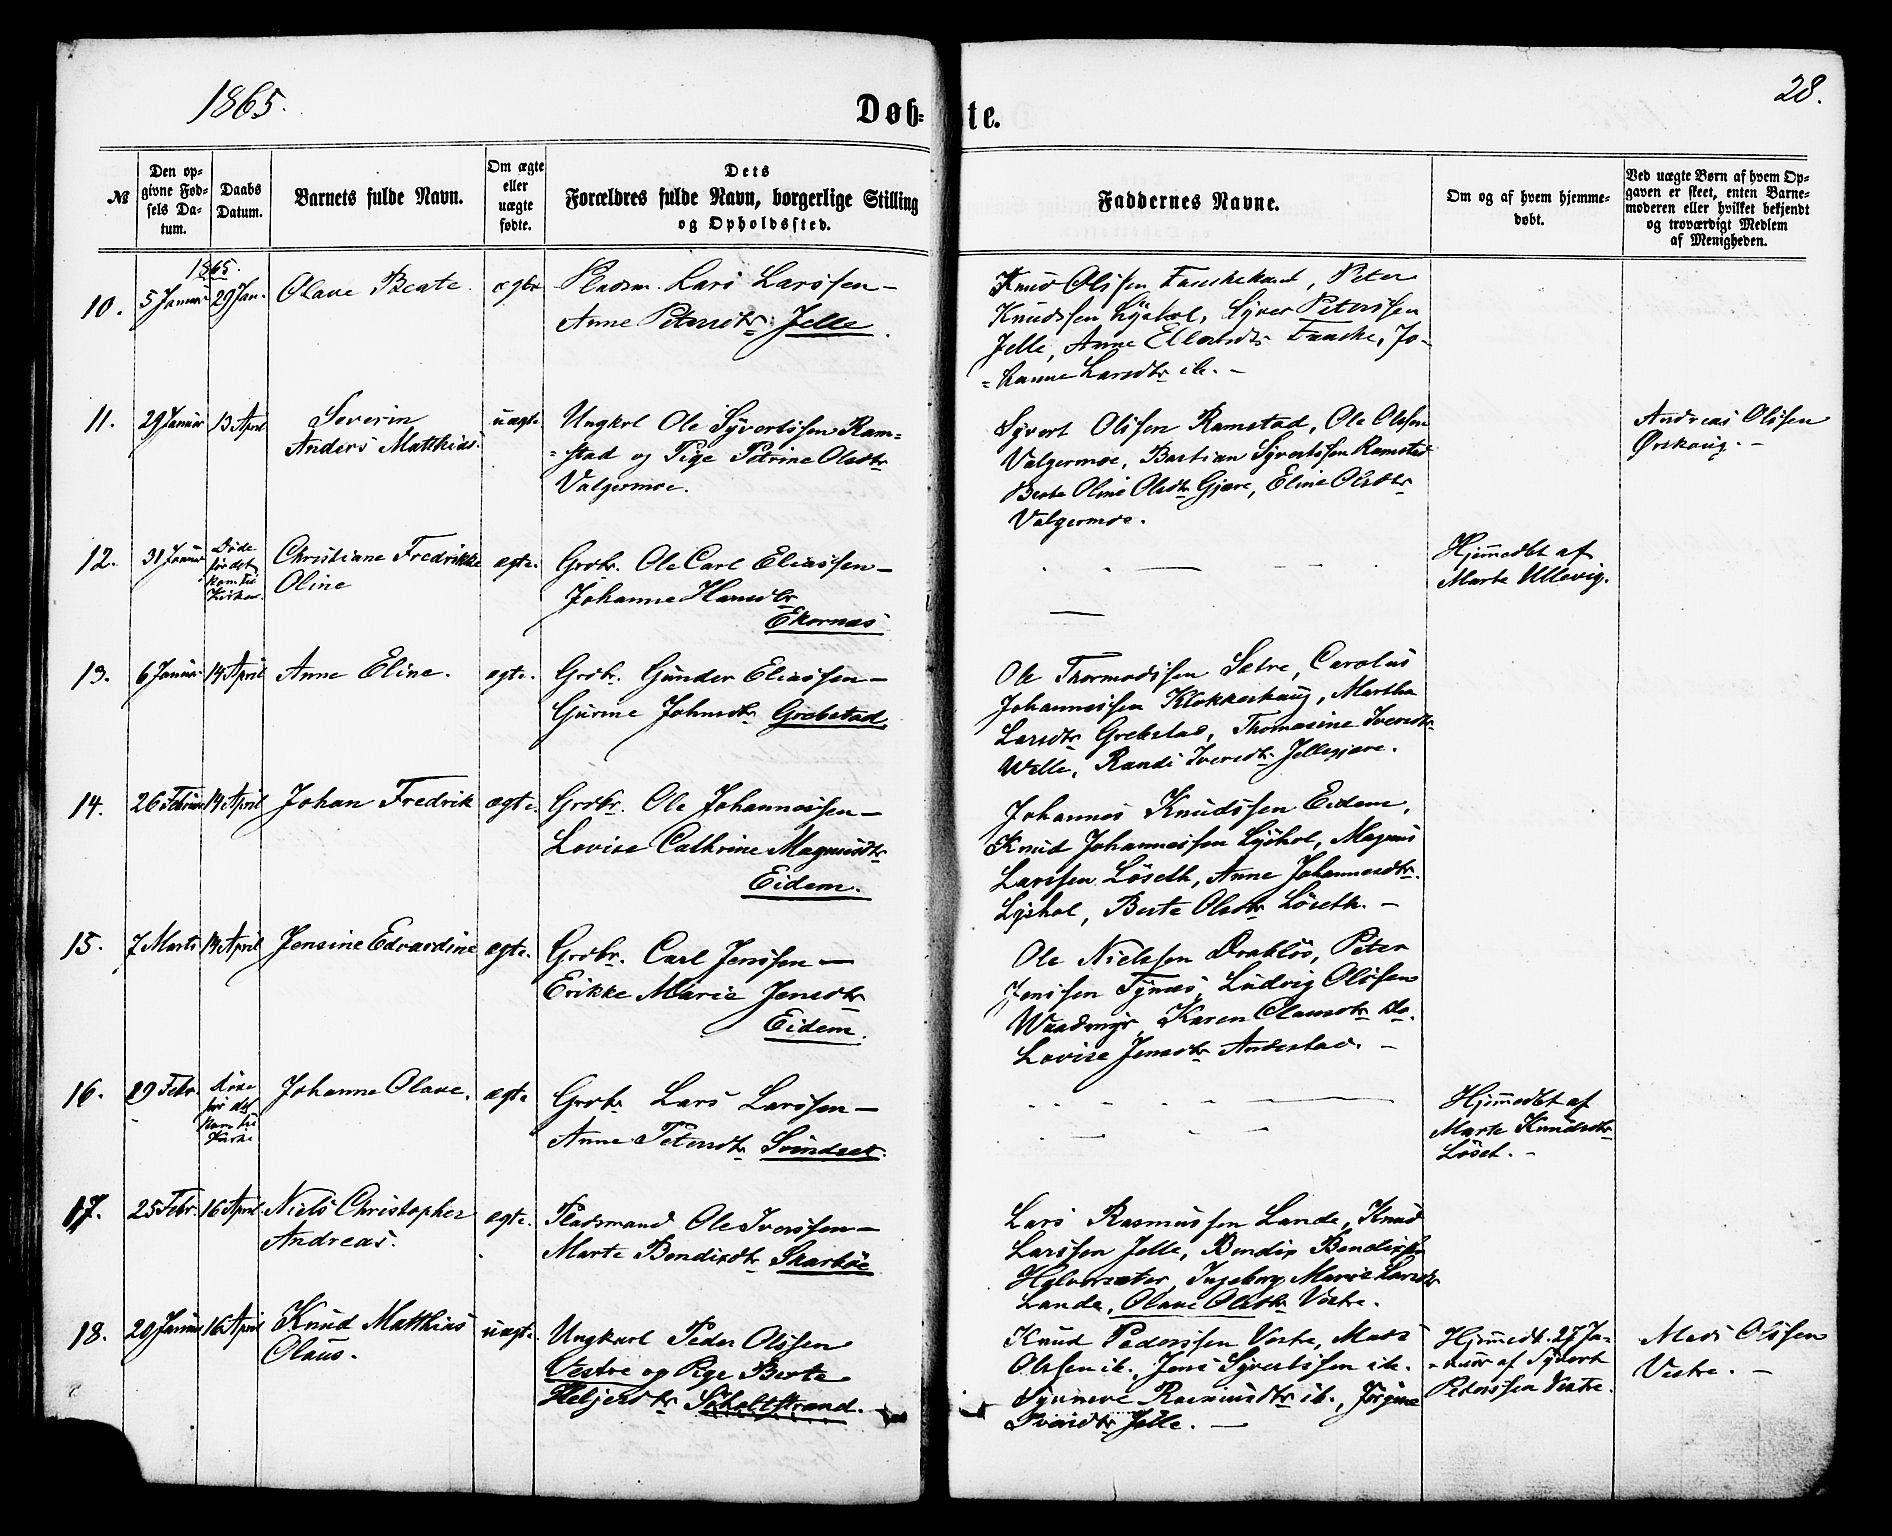 1865.
Døb-
te.
28.
№
Den op-
givne Fød-
sels Da-
tum.
Daabs
Datum.
Barnets fulde Navn.
Om ægte
eller
uægte
fødte.
Dets
Forældres fulde Navn, borgerlige Stilling
og Opholdssted.
Faddernes Navne.
Om og af hvem hjemme-
døbt.
Ved uægte Børn af hvem Op-
gaven er skeet, enten Barne-
moderen eller hvilket bekjendt
og troværdigt Medlem
af Menigheden.
1865.
10.
5 Januar
29 Jan.
Olave Beate.
ægte
Pladsm. Lars Larssen –
Anne Petersdtr. Jelle.
Knud Olssen, Peter
Knudssen Lyshol, Syver Peterssen
Jelle, Anne Ellendsdtr Fauske, Jo-
=hanne Larsdtr ib. –
11.
29 Januar
13 April
Severin
Anders Matthias.
uægte.
Ungkrl Ole Syvertssen Ram=
=stad og Pige Petrine Olsdtr
Valgermoe.
Syvert Olssen Ramstad, Ole Olssen
Valgermoe, Bastian Syvertssen Ramstad
Berte Oline Olsdtr Gjære, Eline Olsdtr
Valgermoe.
Andreas Olssen
Ørskoug. –
12.
31 Januar
Døde
før det
kom til
Kirken.
Christiane Fredrikke
Oline
ægte.
Grdbr. Ole Carl Eliassen –
Johanne Hansdtr
Ekornæs
Hjemmedbt af
Marte Ullevig.
13.
6 Januar
14 April
Anne Eline.
ægte.
Grdbr. Gunder Eliassen –
Gurine Johnsdtr Grebstad
Ole Thormodssen Sætre, Carolus
Johannessen Klokkerhaug, Martha
Larsdtr Grebstad, Thomasine Iversdtr
Welle, Randi Iversdtr Jellegjære.
14.
26 Februar
14 April
Johan Fredrik
ægte.
Grdbr. Ole Johannessen –
Lovise Cathrine Magnusdtr
Eidem.
Johannes Knudssen Eidem,
Knud Johannessen Lyshol, Magnus
Larssen Løseth, Anne Johannesdtr.
Lyshol, Berte Olsdtr Løseth. –
15.
7 Marts
14 April
Jensine Edvardine
ægte.
Grdbr. Carl Jenssen –
Erikke Marie Jensdtr
Eidem.
Ole Nielssen Drabløs, Peter
Jenssen Tynæs, Ludvig Olssen
Karen Clausdtr do.
Lovise Jensdtr Andestad. –
16.
Febr.
Døde
før det
kom til
Kirke
Johanne Olave.
ægte
Grdbr Lars Larssen –
Anne Petersdtr Svindset.
Hjemmedbt af
Marte Knudsdtr
Løset. –
17.
25 Febr.
16 April
Niels Christopher
Andreas.
ægte.
Pladsmand Ole Iverssen –
Marte Bendixdtr Skarbøe
Lars Rasmussen Lande, Knud
Larssen Jelle, Bendix Bendixsen
Halvorsæter, Ingeborg Marie Larsdtr
Lande, Olave Olsdtr Vestre.
18.
20 Januar
16 April
Knud Matthias
Olaus.
uægte.
Ungkarl Peder Olssen
Vestre og Pige Berte
Søholtstrand.
Knud Pederssen Vestre, Mads
Olssen ib., Jens Syvertssen ib.
Synneve Rasmusdtr ib., Jørgine
Jelle. –
Hjemmedbt. 27 Ja-
-nuar af Syvert
Pederssen Vestre.
Mads Olssen
Vestre. –